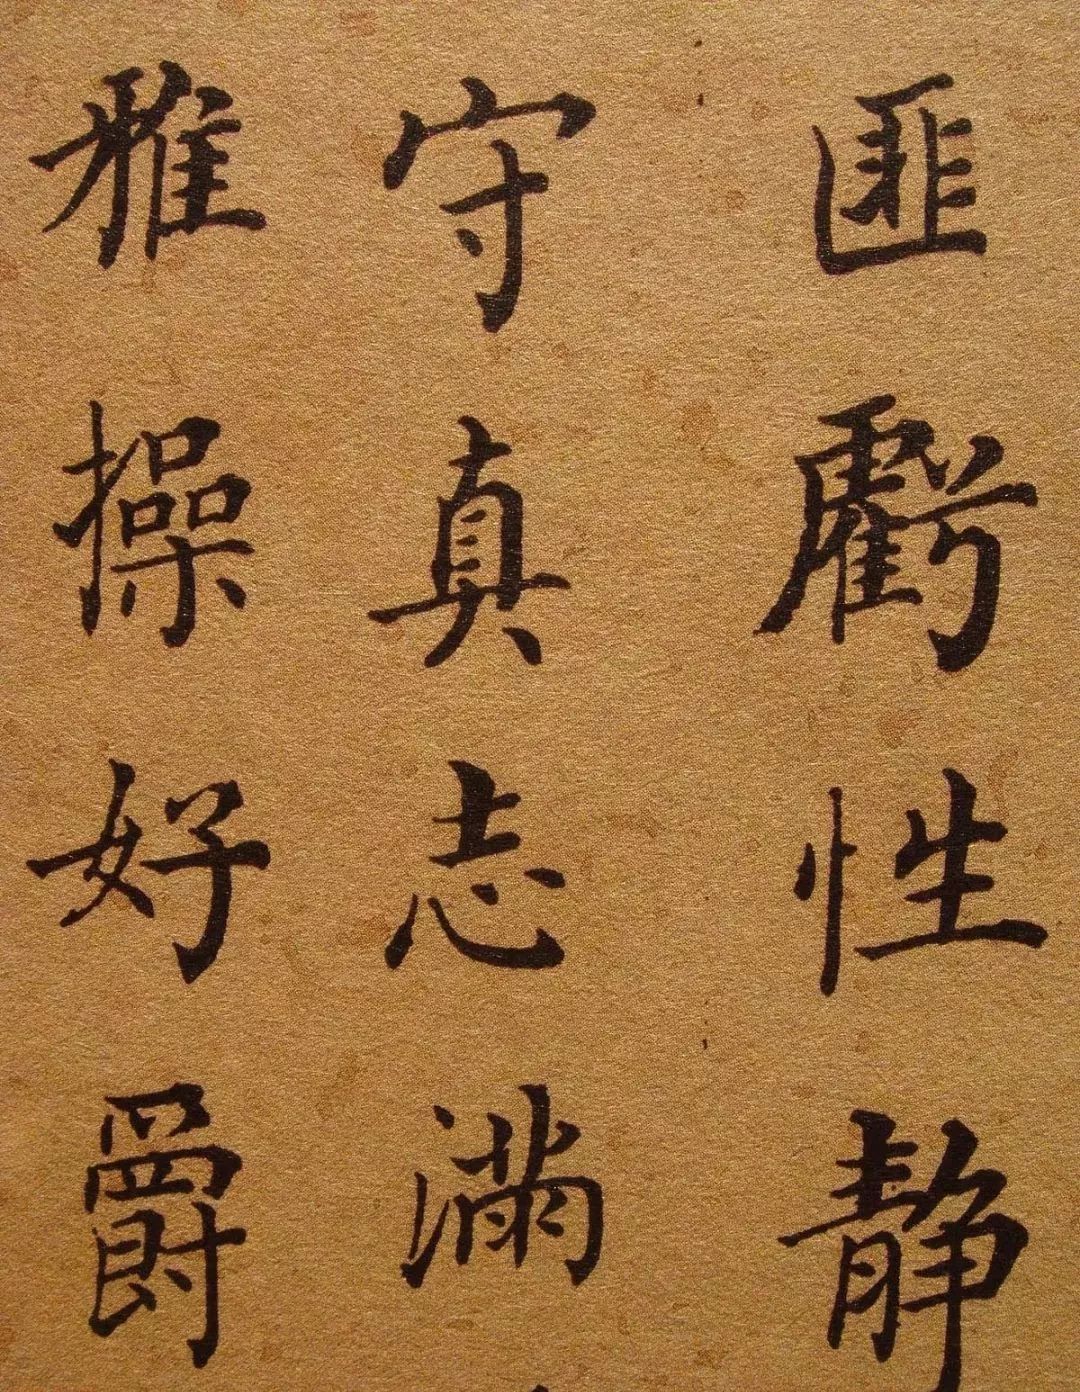 匪虧性静
守真志滿
雅操好爵